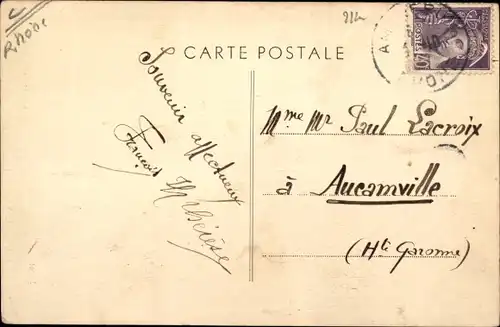 Rhône
CARTE POSTALE
Souvenir affectueux
Mme Mr Paul Lacroix
à Aucamville
(Hte Garonne)